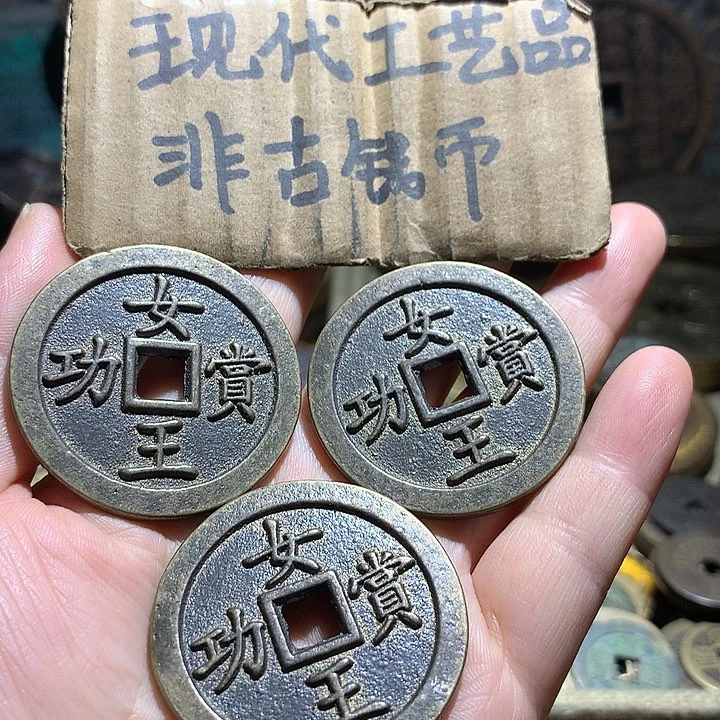 现代工艺品
非古钱币
女王賞功
女王賞功
女王賞功